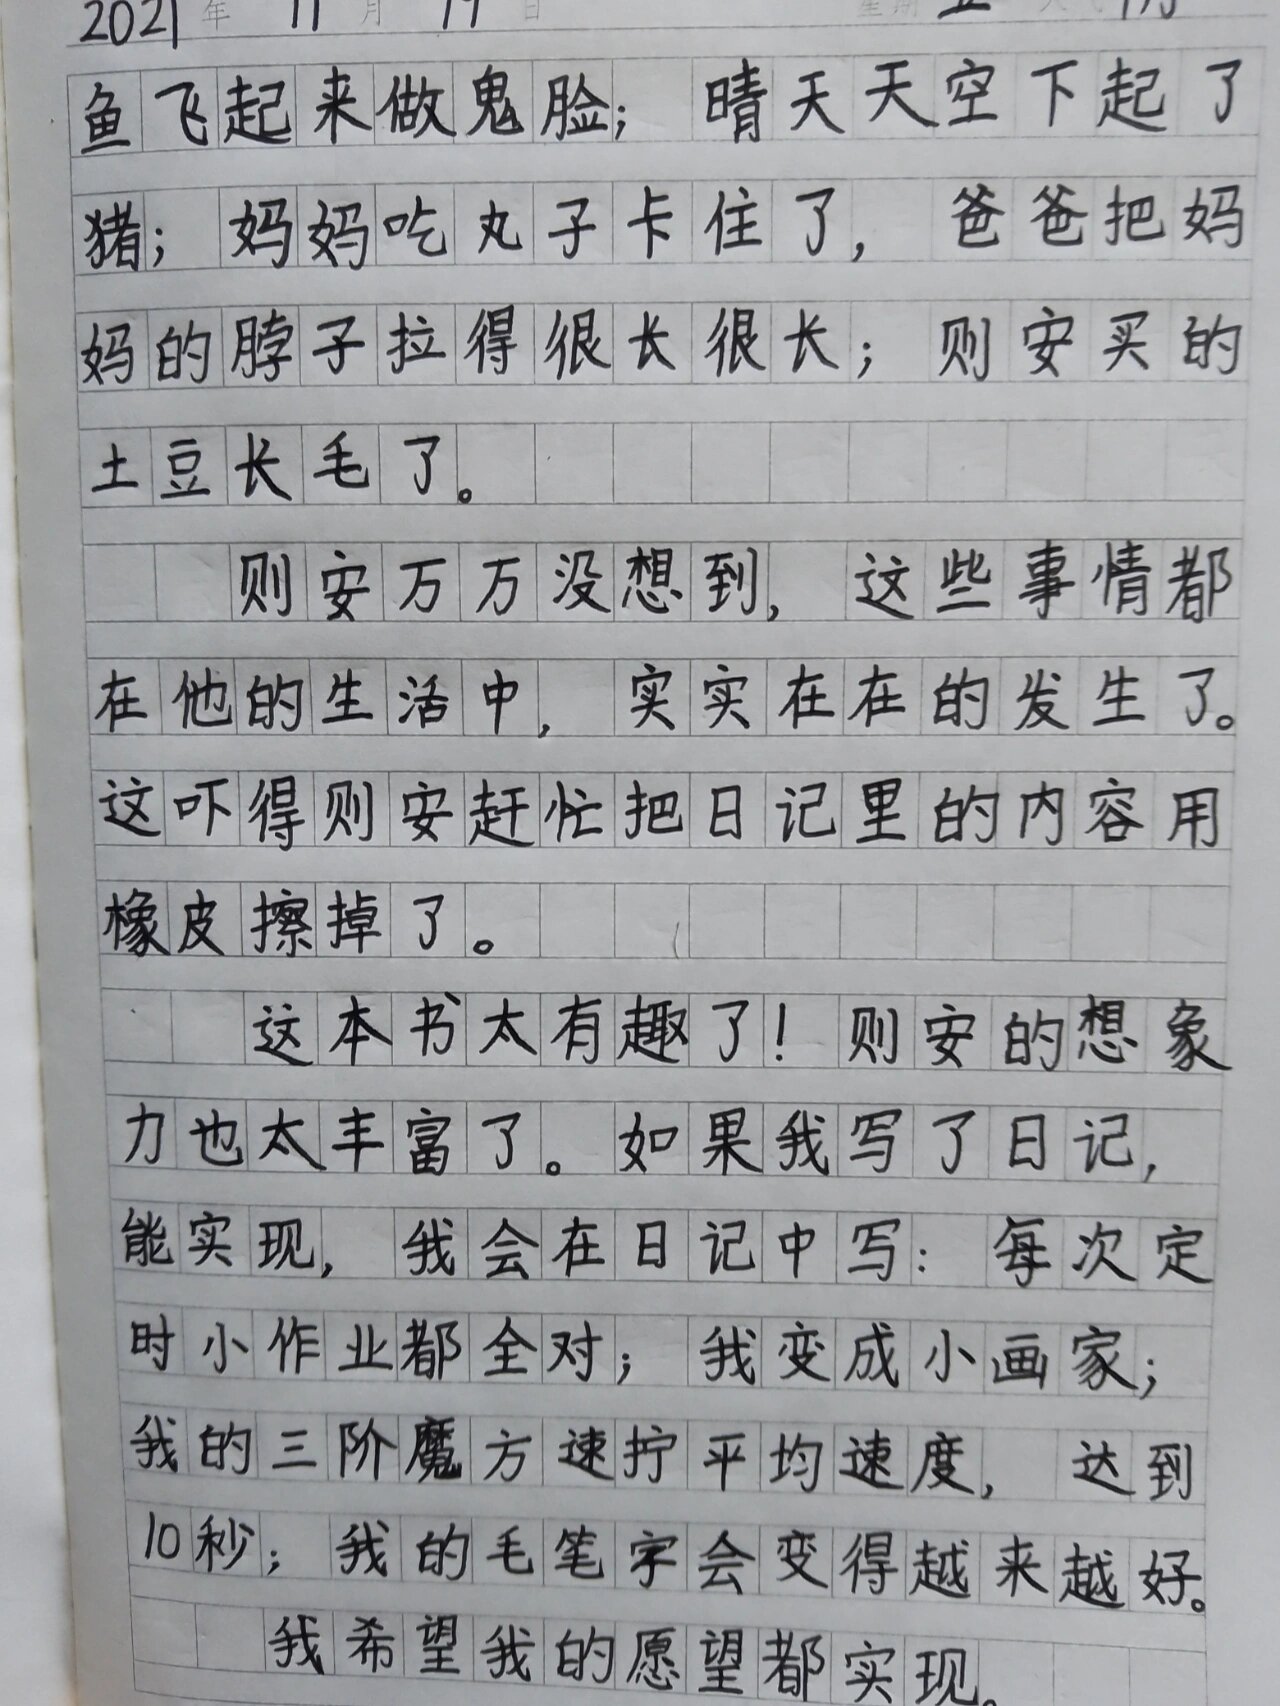 2021年11月19日 星期五
鱼飞起来做鬼脸；晴天天空下起了
猪；妈妈吃丸子卡住了，爸爸把妈
妈的脖子拉得很长很长；则安买的
土豆长毛了。
则安万万没想到，这些事情都
在他的生活中，实实在在的发生了。
这吓得则安赶忙把日记里的内容用
橡皮擦掉了。
这本书太有趣了！则安的想象
力也太丰富了。如果我写了日记，
能实现，我会在日记中写：每次定
时小作业都全对；我变成小画家；
我的三阶魔方速拧平均速度，达到
10秒；我的毛笔字会变得越来越好。
我希望我的愿望都实现。